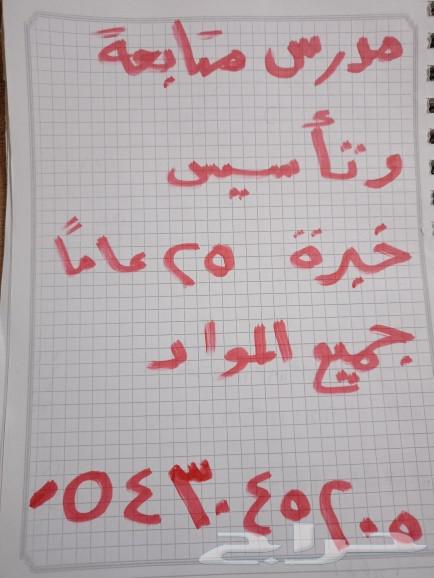 مدرس متابعة
وتأسيس
خبرة ٢٥ عاماً
جميع المواد
٠٥٤٣٠٤٥٢٠٥
حراج